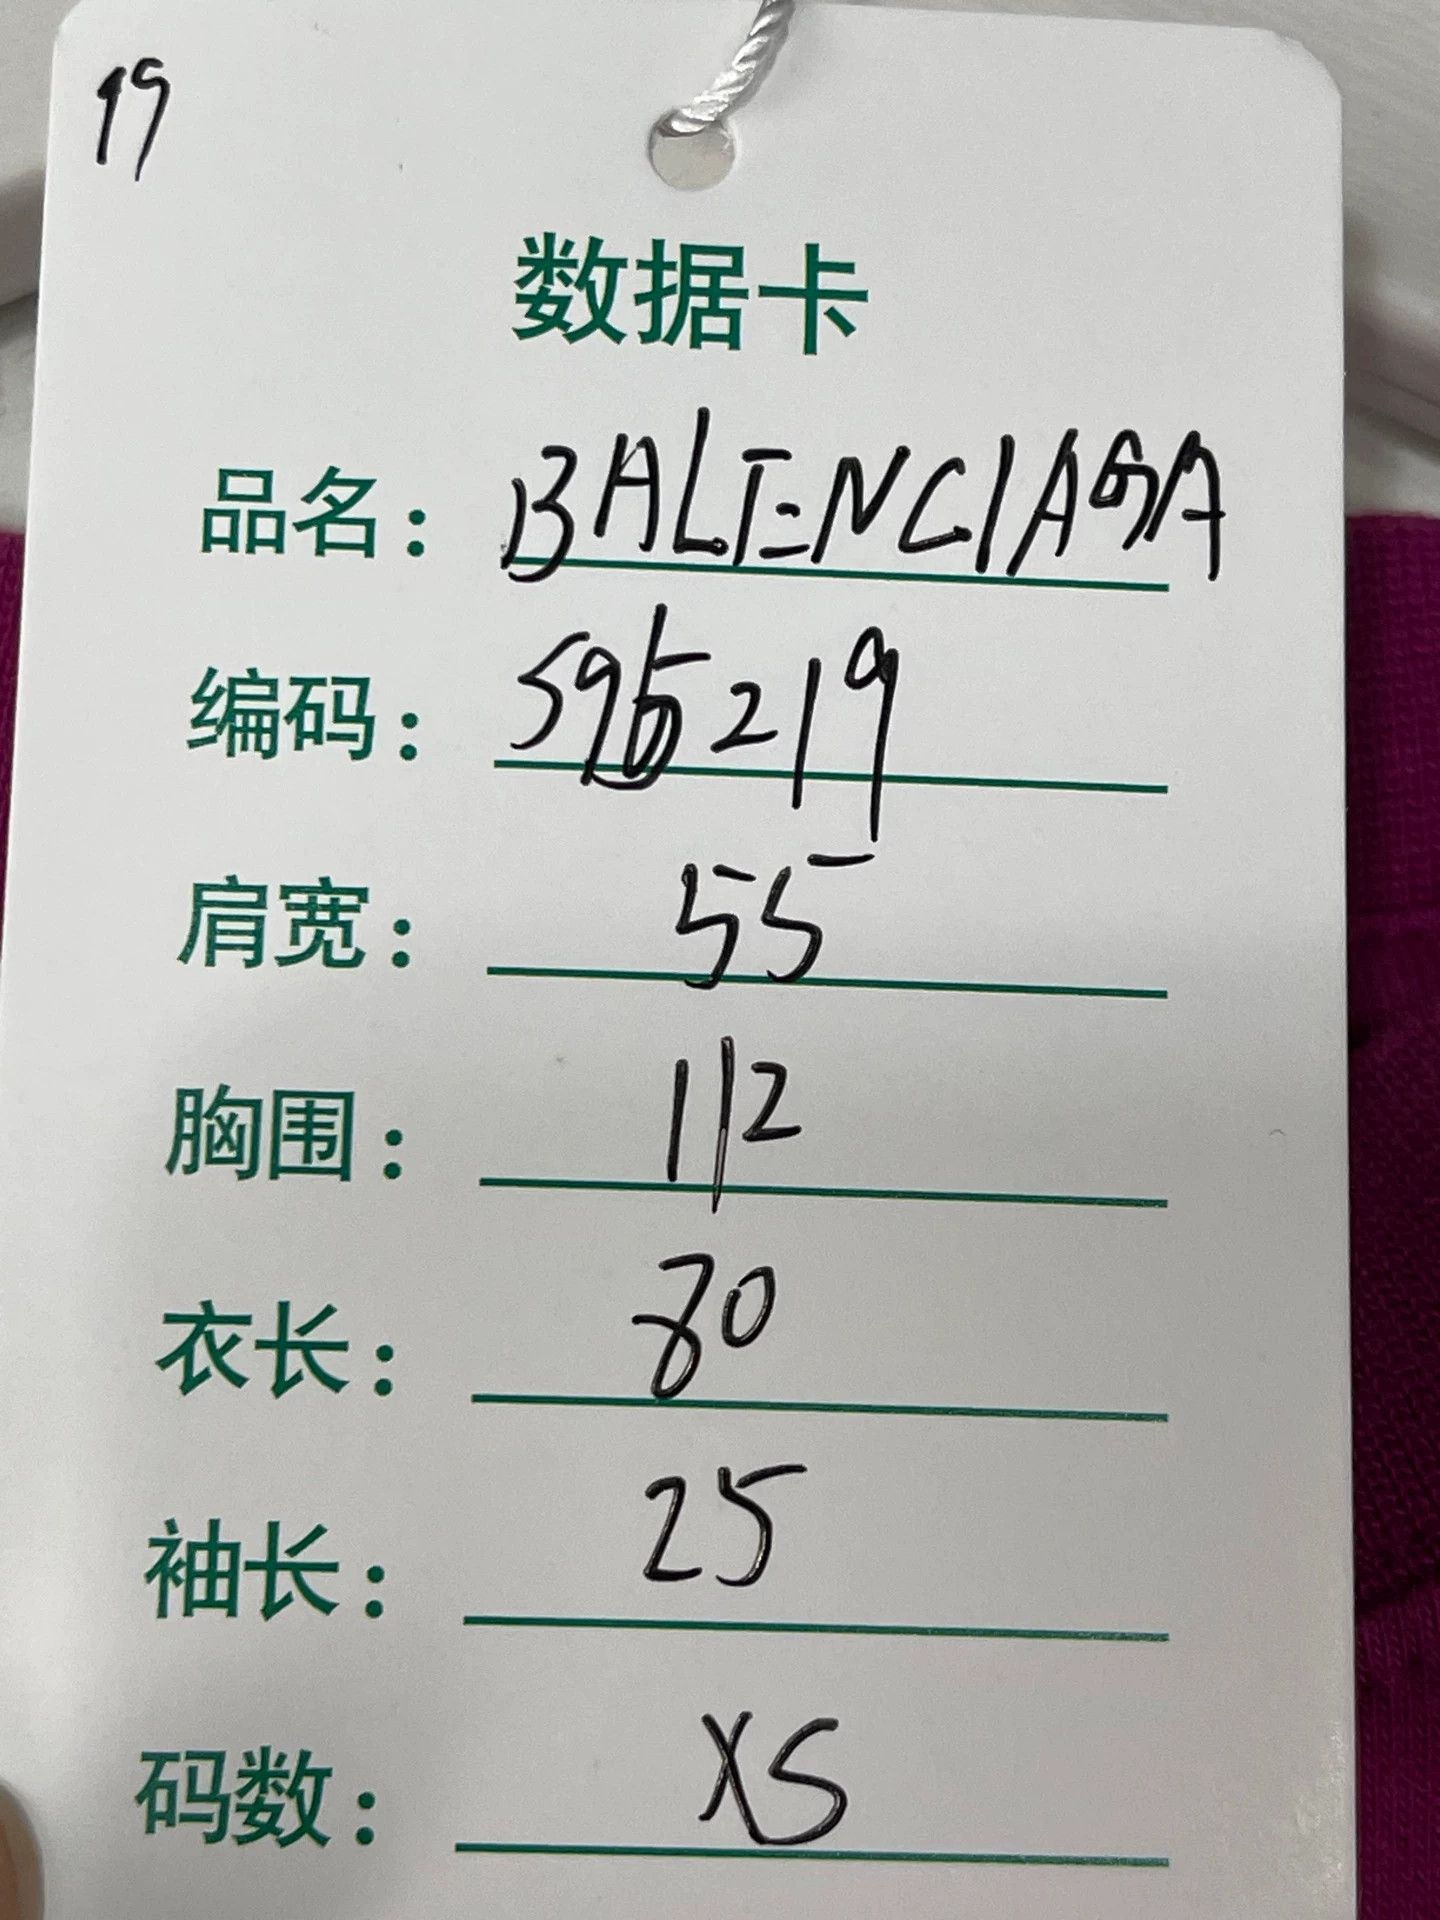 19
数据卡
品名：BALENCIAGA
编码：595219
肩宽：55
胸围：112
衣长：80
袖长：25
码数：XS